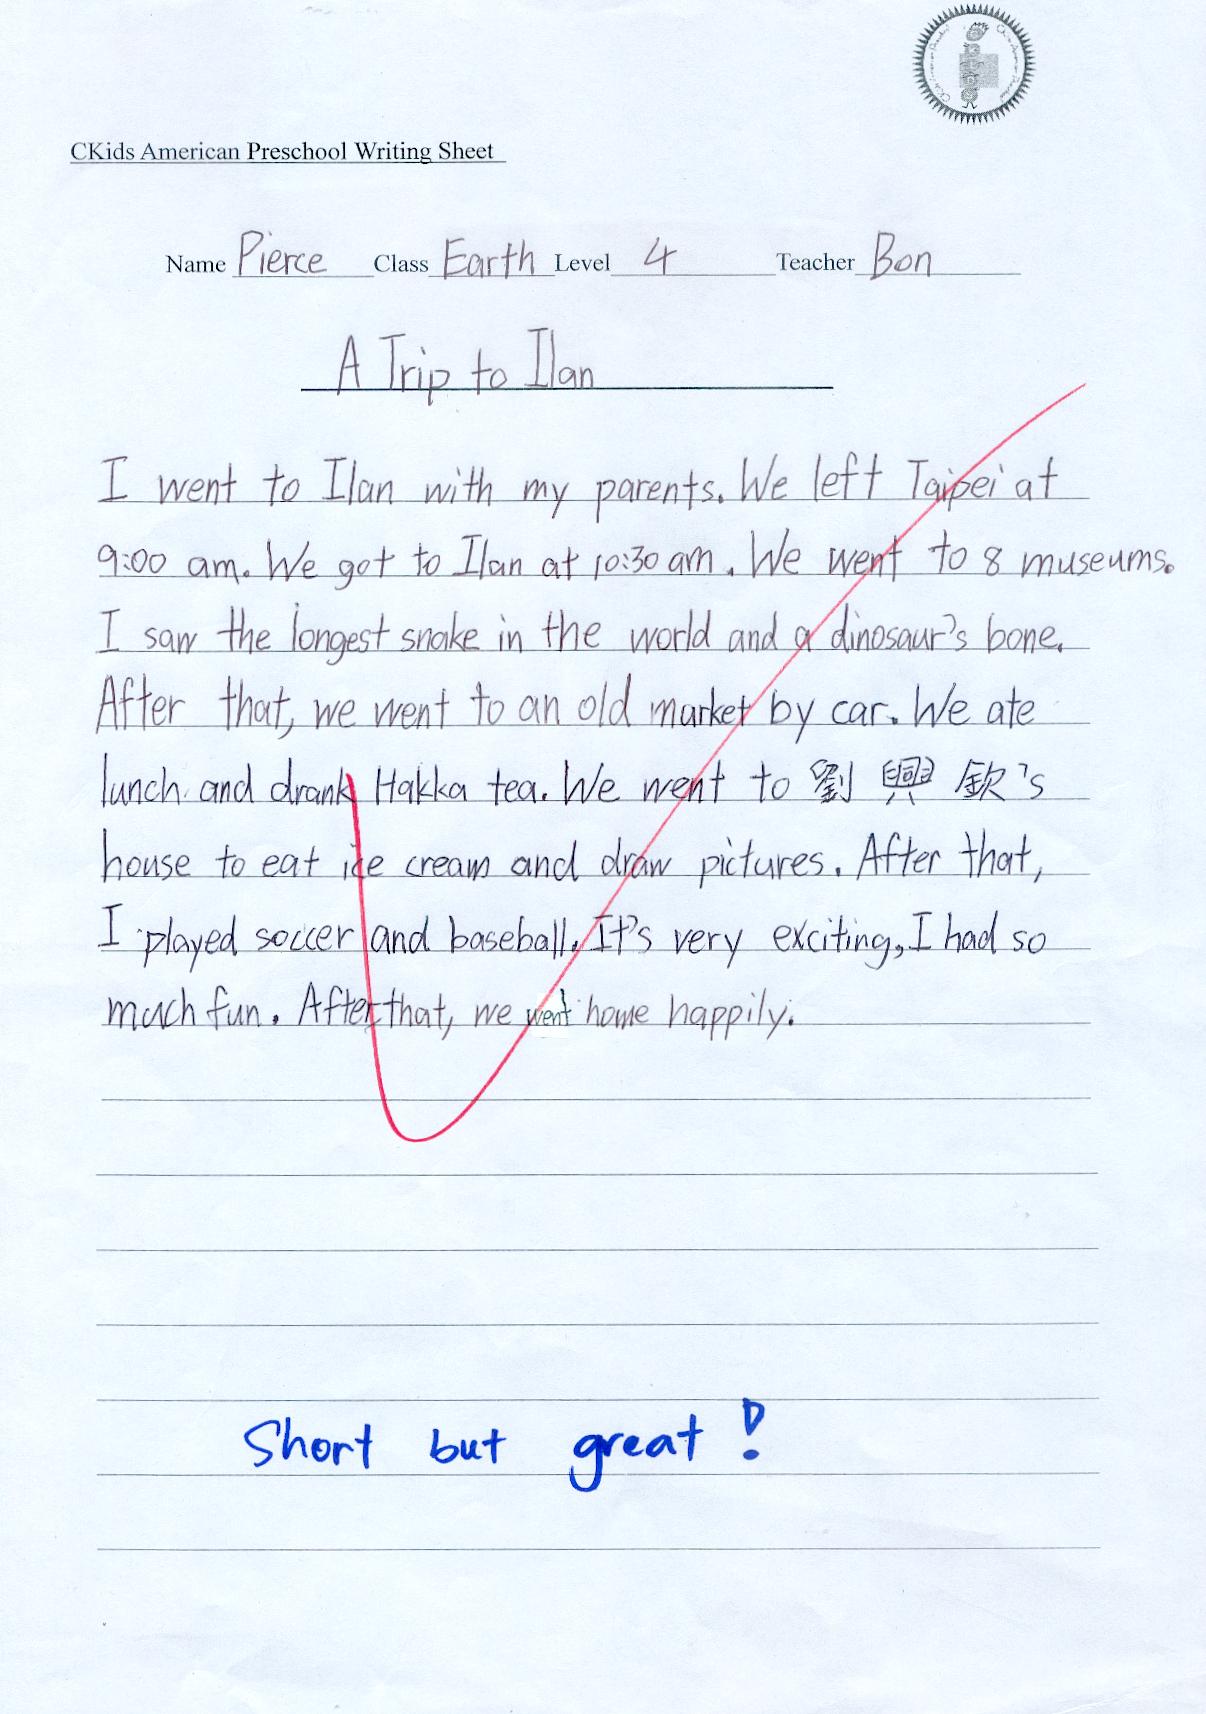 CKids American Preschool Writing Sheet
Name Pierce Class Earth Level 4 Teacher Bon
A Trip to Ilan
I went to Ilan with my parents. We left Taipei at
9:00 am. We got to Ilan at 10:30 am. We went to 8 museums.
I saw the longest snake in the world and a dinosaur's bone.
After that, we went to an old market by car. We ate
lunch and drank Hakka tea. We went to 劉興欽's
house to eat ice cream and draw pictures. After that,
I played soccer and baseball. It's very exciting, I had so
much fun. After that, we went home happily.
Short but great!